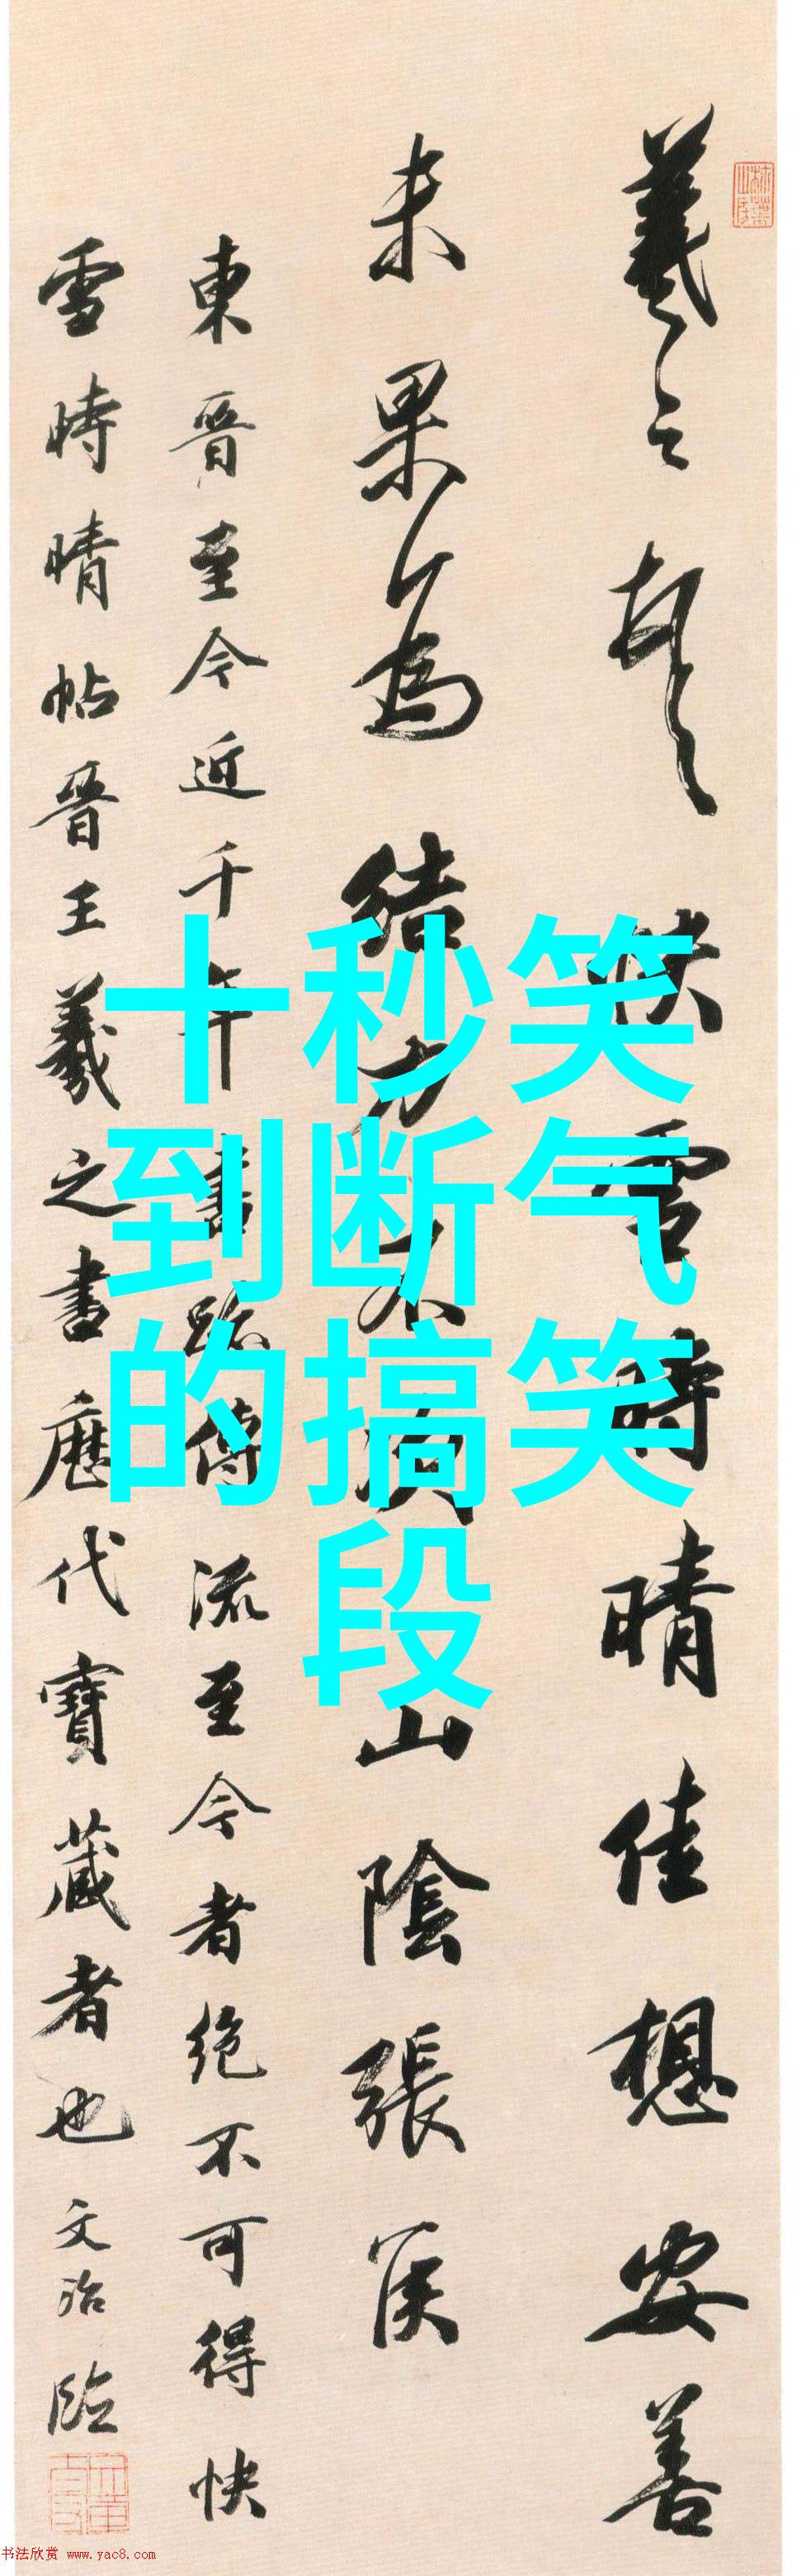 羲之頓首快雪時晴佳想安善
未果為結力不次山陰張侯
東晉至今近千年書跡傳流至今者绝不可得快
雪時晴帖晉王羲之書歷代寶藏者也文治臨
十秒笑
到断气
的搞笑
段
书法欣赏 www.yac8.com